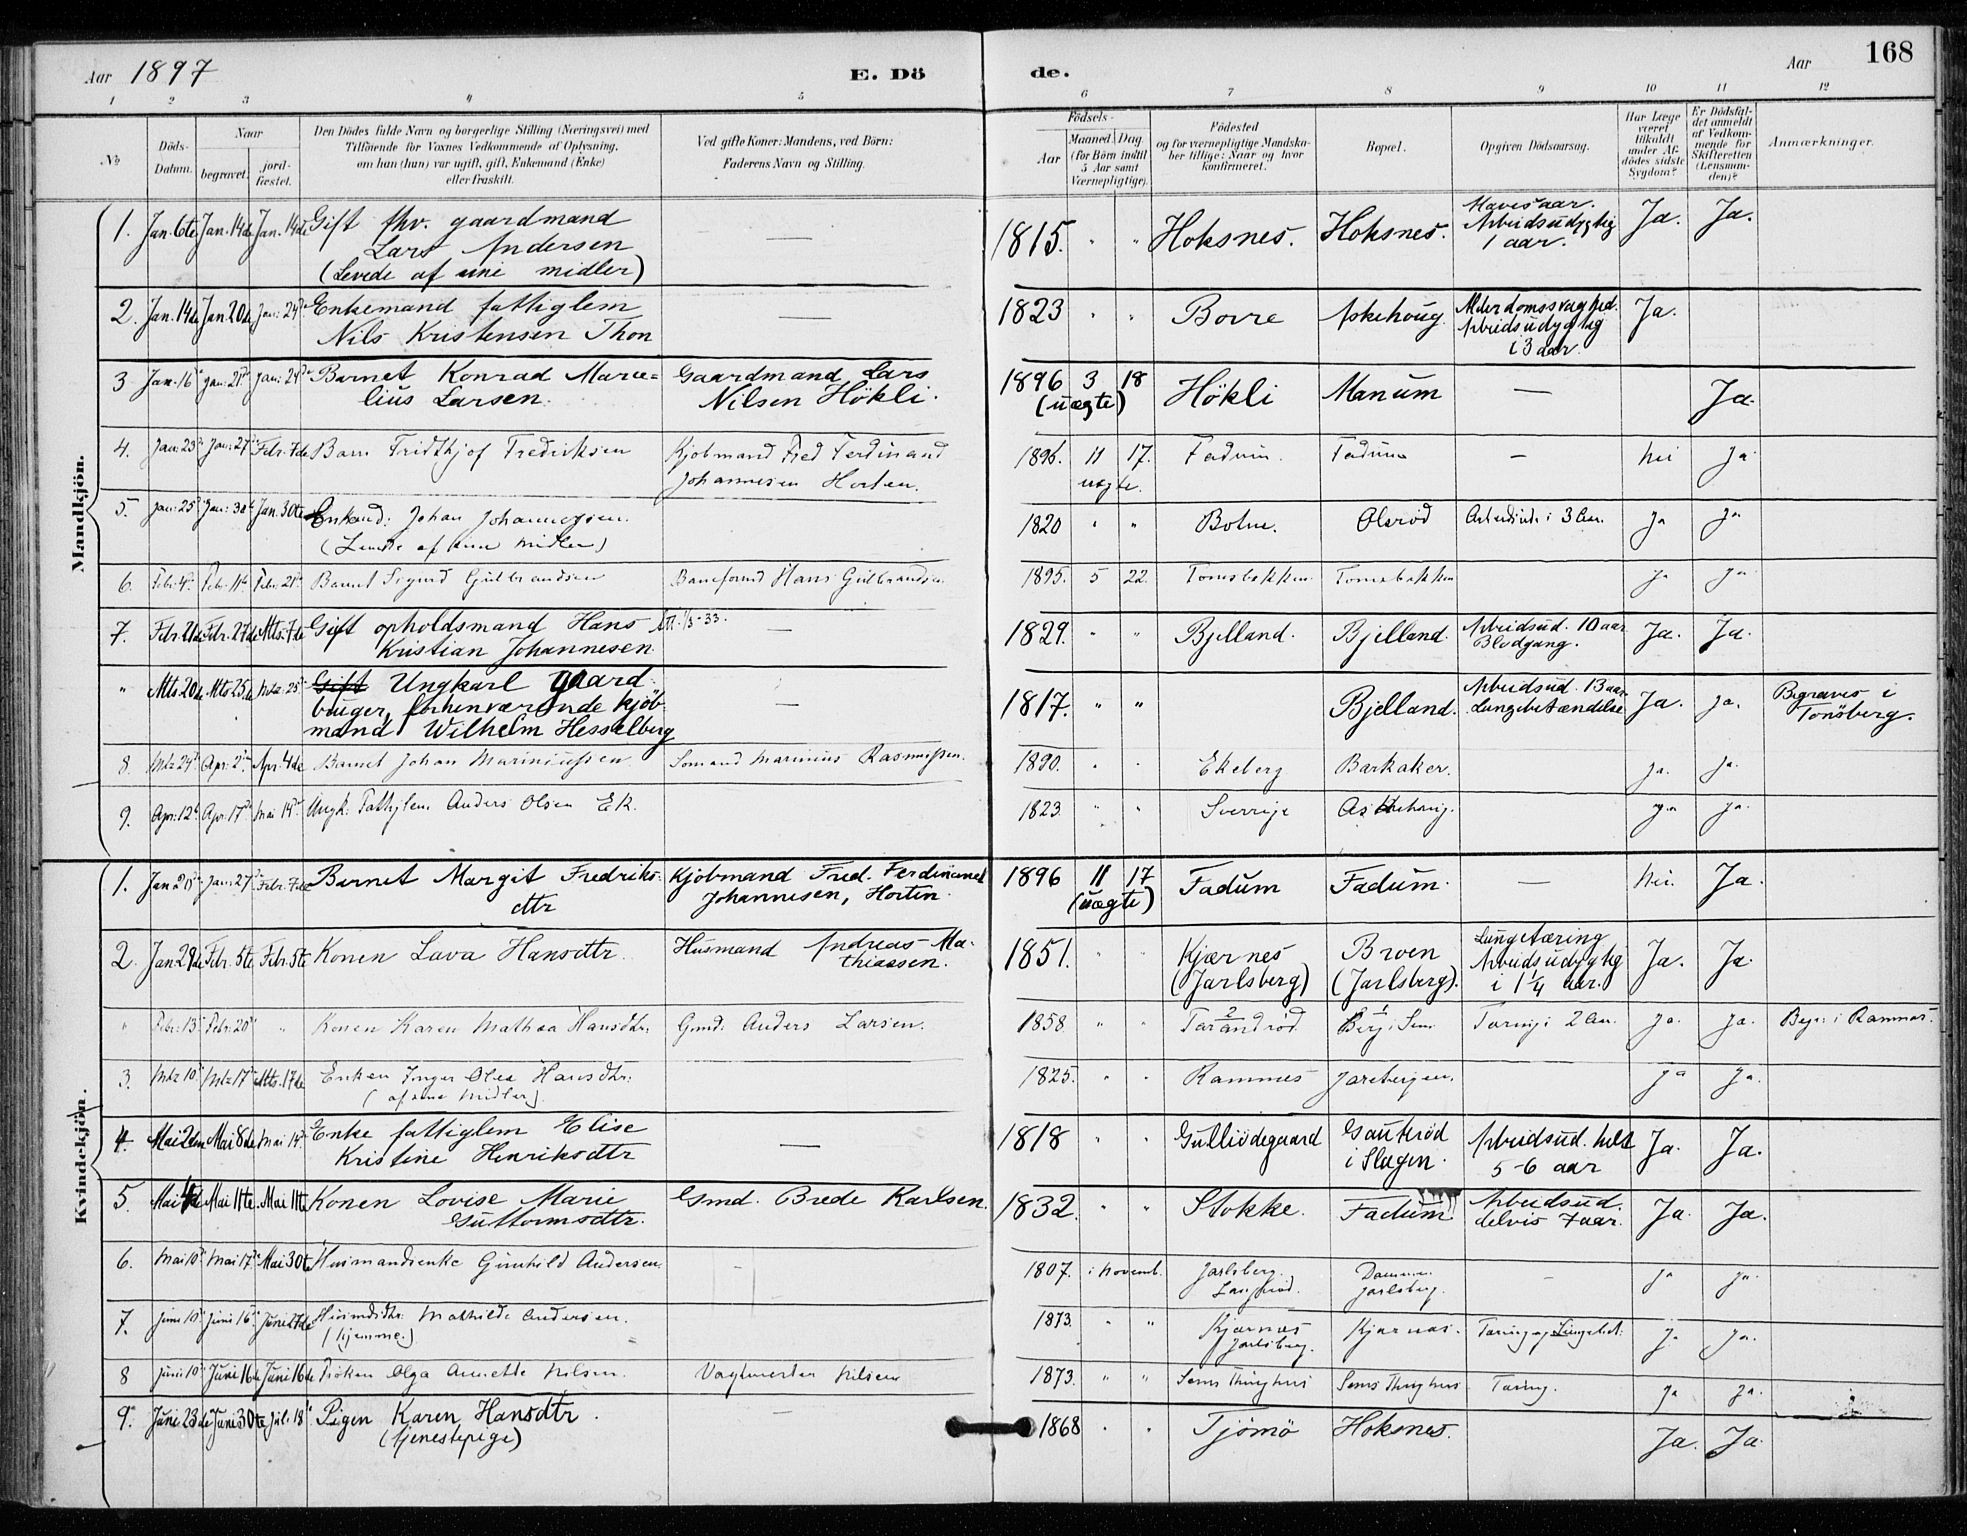 Aar 1897 E. Dö de. Aar 168
1 2 3 4 5 6 7 8 9 10 11 12
No
Döds-Datum.
Naar begravet. jord-fæstet.
Den Dödes fulde Navn og borgerlige Stilling (Næringsvei) med
Tilföiende for Voxnes Vedkommende af Oplysning,
om han (hun) var ugift, gift, Enkemand (Enke)
eller fraskilt.
Ved gifte Koner: Mandens, ved Börn:
Faderens Navn og Stilling.
Födsels-
Aar Maaned. Dag.
(for Börn indtil
5 Aar samt
Værnepligtige).
Födested
og for værnepligtige Mandska-
ber tillige: Naar og hvor
konfirmeret.
Bopæl.
Opgiven Dödsaarsag.
Har Læge
været
tilkaldt
under Af-
dödes sidste
Sygdom?
Er Dödsfal-
det anmeldt
af Vedkom-
mende for
Skifteretten
(Lensman-
den)?
Anmærkninger.
Mandkjön.
1. Jan. 6te Jan. 14de Jan. 14de Gift fhv. gaardmand — 1815. " " Hoksnes. Hoksnes. Mavesaar. Ja. Ja.
Lars Andersen Arbeidsudygtig
(Levede af sine midler) 1 aar.
2. Jan. 14de Jan. 20de Jan: 24de Enkemand fattiglem — 1823 " " Borre Askehoug Alderdomssvaghed. Ja.
Nils Kristensen Thon Arbeidsudygtig
i 3 aar.
3 Jan. 16de Jan: 21de Jan: 24de Barnet Konrad Marce= Gaardmand Lars 1896 3 18 Hökli Manum — Ja.
lius Larsen. Nilsen Hökli. (uægte)
4. Jan: 23de Jan: 27de Febr. 7de Barn Fridthjof Fredriksen Kjöbmand Fred Ferdinand 1896. 11 17. Fadum. Fadum — Nei Ja
Johannesen Horten. uægte.
5. Jan: 25de Jan: 30te Jan. 30te Enkemd: Johan Johannesen. 1820 " " Botne. Olsröd i 3 Aar. Ja Ja
(Levede af sine Midler)
6. Febr: 4de Febr. 11te Febr. 21de Barnet Sigurd Gulbrandsen Hans Gulbrandsen. 1895. 5 22. Tomsbakken. Tomsbakken Ja Ja
7. Febr. 21de Febr. 27de Mts. 7de Gift opholdsmand Hans — 1829. " " Bjelland. Bjelland. Arbeidsud. 10 aar Ja. Ja.
Kristian Johannesen. Blodgang.
" Mts. 20de Mts 25de Mts 25de Gift Ungkarl gaard- — 1817. " " Bjelland. Arbeidsud. 13 aar. Ja. Ja. Begraves i
bruger, forhenværende kjöb- Lungebetændelse Tonsberg.
mand Wilhelm Hesselberg
8. Mts 29de Apr: 2den Apr. 4de Barnet Johan Mariniussen. Sömand Marinius Rasmussen. 1890. " " Ekeberg Barkaker. Ja. Ja.
9. Apr: 12te Apr: 17de Mai 14de Ungk: Fattiglem Anders Olsen Ek. 1823. " " Sverrige Askehoug. Ja Ja.
Kvindekjön.
1. Jan 20de Jan: 27de Febr. 7de Barnet Margit Fredriks- Kjöbmand Fred. Ferdinand 1896 11 17 Fadum Fadum. — Nei. Ja.
dtr Johannesen, Horten. (uægte)
2. Jan 29de Febr. 5te Febr. 5te Konen Lava Hansdtr. Husmand Andreas Ma- 1851. " " Kjærnes Broen Lungetæring Ja. Ja.
thiassen. (Jarlsberg) (Jarlsberg). Arbeidsudygtig
i 1 1/4 aar.
" Febr: 13de Febr: 20de " Konen Karen Mathea Hansdtr. Gmd: Anders Larsen. 1858. " " Tarandröd Berg i Sem Taring i 2 Aar. Ja. Ja. Begr: i Ramnes.
3. Mts 10de Mts 17de Mts. 17de Enken Inger Olea Hansdtr: 1825. " " Ramnes Jarebergen. Ja Ja.
(af sine Midler)
4. Mai 2den Mai 8de Mai 14de Enke fattiglem Elise — 1818 " " Gullödegaard Gauteröd Arbeidsud. helt Ja. Ja.
Kristine Henriksdtr i Slagen. 5-6 aar
5. Mai 4de Mai 11te. Mai 11te Konen Lovise Marie Gmd. Brede Karlsen. 1832. " " Stokke. Fadum Arbeidsud. Ja. Ja.
Guttormsdtr. delvis 7 aar.
6. Mai 10de Mai 17de Mai 30te Husmandsenke Gunhild Andersen. 1807. i Novemb. Jarlsberg. — Ja Ja.
Jarlsberg.
7. Juni 10de Juni 16de Juni 27de Husmdsdtr. Mathilde Andersen. 1873. " " Kjærnes Kjærnes. Taring og Lungebet: Ja Ja.
(hjemme.) Jarlsberg.
8 Juni 10de Juni 16de Juni 16de Fröken Olga Annette Nilsen. Vagtmester Nilsen 1873. " " Sems Thinghus Sems Thinghus Taring. Ja Ja.
9. Juni 23de Juni 30te Jul. 18de Pigen Karen Hansdtr. — 1868 " " Tjömö Hoksnes. Ja. Ja
(tjenestepige)